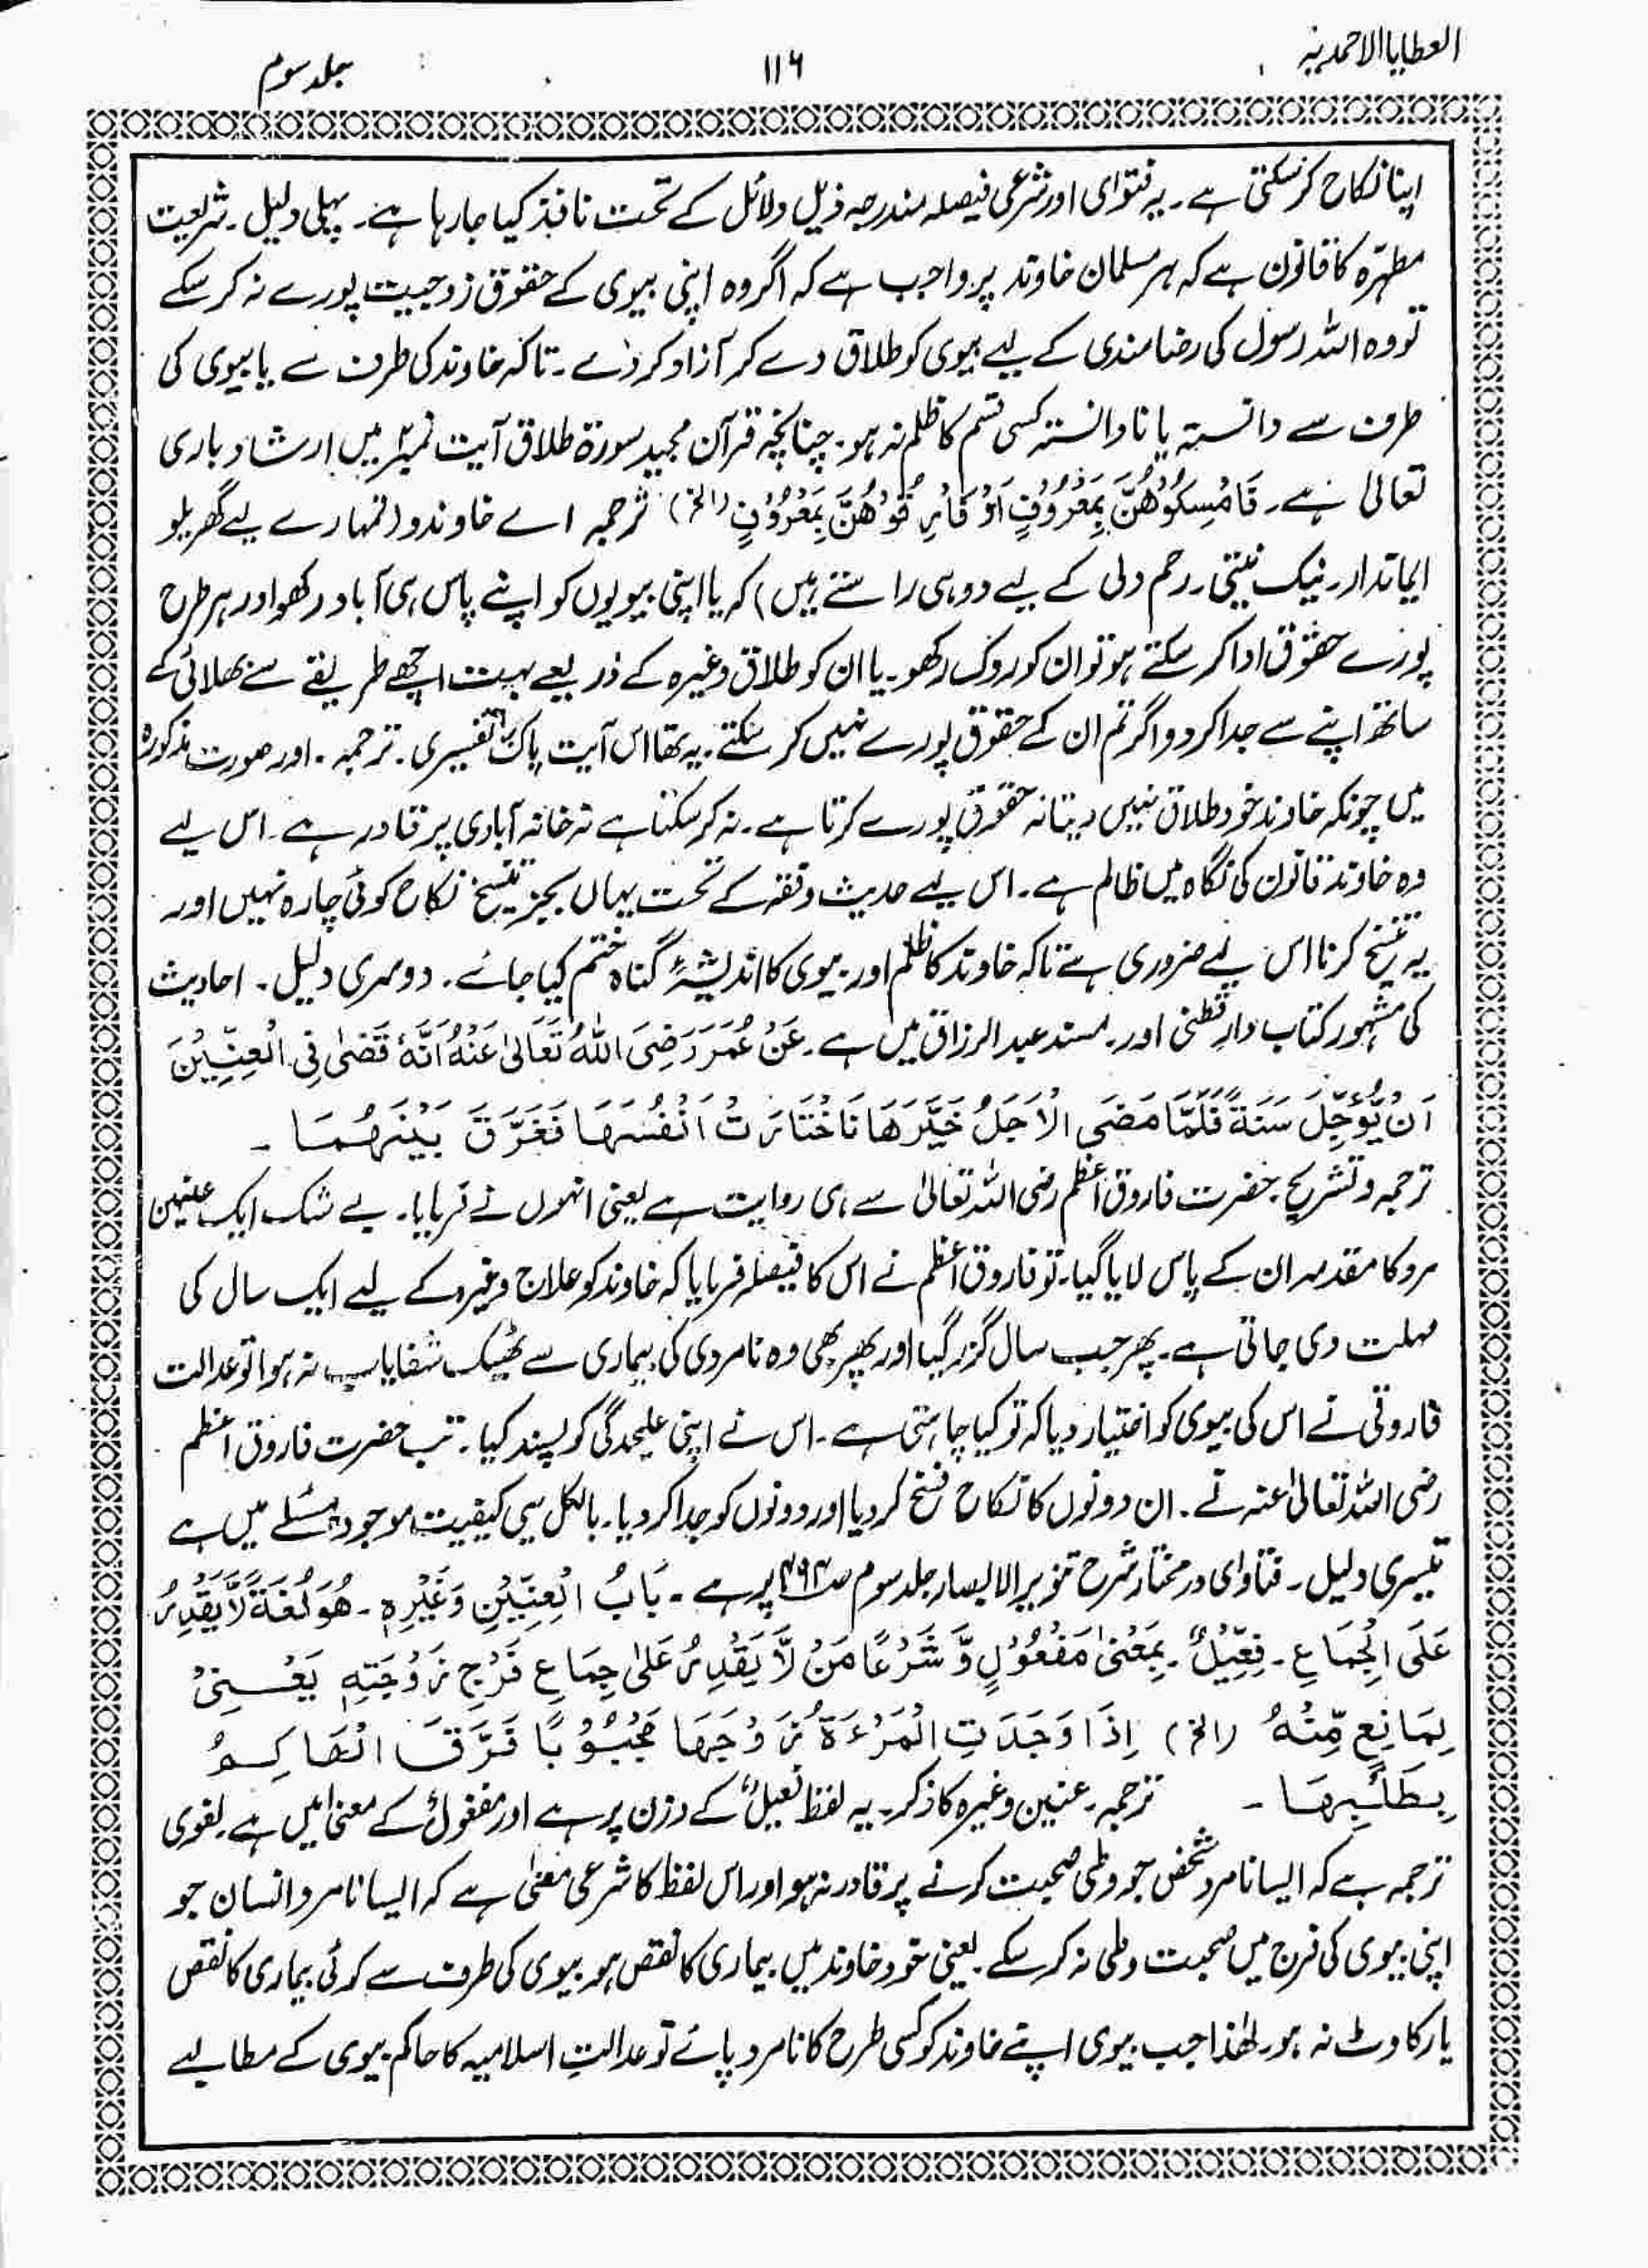 العطایا الاحمدیہ
۱۱۶
جلد سوم
اپنا نکاح کر سکتی ہے۔ یہ فتوٰی اور شرعی فیصلہ مندرجہ ذیل دلائل کے تحت نافذ کیا جا رہا ہے۔ پہلی دلیل۔ شریعت
مطہرّہ کا قانون ہے کہ ہر مسلمان خاوند پر واجب ہے کہ اگر وہ اپنی بیوی کے حقوق زوجیت پورے نہ کر سکے
تو وہ اللہ رسول کی رضا مندی کے لیے بیوی کو طلاق دے کر آزاد کر دے۔ تاکہ خاوند کی طرف سے یا بیوی کی
طرف سے دانستہ یا نا دانستہ کسی قسم کا ظلم نہ ہو۔ چنانچہ قرآن مجید سورۃ طلاق آیت نمبر۲ میں ارشاد باری
تعالیٰ ہے۔ فَامْسِكُوْهُنَّ بِمَعْرُوْفٍ اَوْ فَارِقُوْهُنَّ بِمَعْرُوْفٍ (الخ) ترجمہ اے خاوندو (تمہارے لیے گھریلو
ایماندار۔ نیک نیتی۔ رحم دلی کے لیے دو ہی راستے ہیں) کہ یا اپنی بیویوں کو اپنے پاس ہی آباد رکھو اور ہر طرح
پورے حقوق ادا کر سکتے ہو تو ان کو روک رکھو۔ یا ان کو طلاق وغیرہ کے ذریعے بہت اچھے طریقے سے بھلائی کے
ساتھ اپنے سے جدا کر دو اگر تم ان کے حقوق پورے نہیں کر سکتے۔ یہ تھا اس آیت پاک کا تفسیری۔ ترجمہ۔ اور صورت مذکورہ
میں چونکہ خاوند خود طلاق نہیں دیتا نہ حقوق پورے کرتا ہے۔ نہ کر سکتا ہے نہ خانہ آبادی پر قادر ہے۔ اس لیے
وہ خاوند قانون کی نگاہ میں ظالم ہے۔ اس لیے حدیث و فقہ کے تحت یہاں بجز تنسیخ نکاح کوئی چارہ نہیں اور
یہ تنسیخ کرنا اس لیے ضروری ہے تاکہ خاوند کا ظلم اور بیوی کا اندیشۂ گناہ ختم کیا جائے۔ دوسری دلیل۔ احادیث
کی مشہور کتاب دار قطنی اور۔ مسند عبد الرزاق میں ہے۔ عَنْ عُمَرَ رَضِیَ اللّٰهُ تَعَالیٰ عَنْهُ اَنَّهٗ قَضٰی فِی الْعِنِّیْنَ
اَنْ یُّؤَجَّلَ سَنَةً فَلَمَّا مَضَی الْاَجَلُ خَیَّرَهَا نَاخْتَارَتْ اَنْفُسَهَا فَغَرَّقَ بَیْنَهُمَا۔
ترجمہ و تشریح۔ حضرت فاروق اعظم رضی اللہ تعالیٰ سے ہی روایت ہے یعنی انہوں نے فرمایا۔ بے شک ایک عنین
مرد کا مقدمہ ان کے پاس لایا گیا۔ تو فاروق اعظم نے اس کا فیصلہ فرمایا کہ خاوند کو علاج وغیرہ کے لیے ایک سال کی
مہلت دی جاتی ہے۔ پھر جب سال گزر گیا اور پھر بھی وہ نامردی کی بیماری سے ٹھیک شفایاب نہ ہوا تو عدالت
فاروقی نے اس کی بیوی کو اختیار دیا کہ تو کیا چاہتی ہے۔ اس نے اپنی علیحدگی کو پسند کیا۔ تب حضرت فاروق اعظم
رضی اللہ تعالیٰ عنہ نے۔ ان دونوں کا نکاح فسخ کر دیا اور دونوں کو جدا کر دیا۔ بالکل یہی کیفیت موجودہ مسئلے میں ہے
تیسری دلیل۔ فتاوٰی در مختار شرح تنویر الابصار جلد سوم پر ہے۔ بَابُ الْعِنِّیْنِ وَغَیْرِهٖ۔ هُوَ لُغَةً لَّا یَقْدِرُ
عَلَی الْجِمَاعِ۔ فِعِّیْلٌ۔ بِمَعْنیٰ مَفْعُوْلٍ وَّ شَرْعًا مَنْ لَّا یَقْدِرُ عَلیٰ جِمَاعِ فَرْجِ زَوْجَتِهٖ یَعْنِیْ
لِمَانِعٍ مِّنْهُ (الخ) اِذَا وَجَدَتِ الْمَرْءَةُ زَوْجَهَا مَجْبُوْبًا فَرَّقَ الْحَاكِمُ
بِطَلَبِهَا۔ ترجمہ۔ عنین وغیرہ کا ذکر۔ یہ لفظ فعیل کے وزن پر ہے اور مفعول کے معنیٰ میں ہے۔ لغوی
ترجمہ ہے کہ ایسا نامرد شخص جو وطی صحبت کرنے پر قادر نہ ہو اور اس لفظ کا شرعی معنیٰ ہے کہ ایسا نامرد انسان جو
اپنی بیوی کی فرج میں صحبت وطی نہ کر سکے۔ یعنی خود خاوند میں بیماری کا نقص ہو بیوی کی طرف سے کوئی بیماری کا نقص
یا رکاوٹ نہ ہو۔ لھٰذا جب بیوی اپنے خاوند کو کسی طرح کا نامرد پائے تو عدالتِ اسلامیہ کا حاکم بیوی کے مطالبے